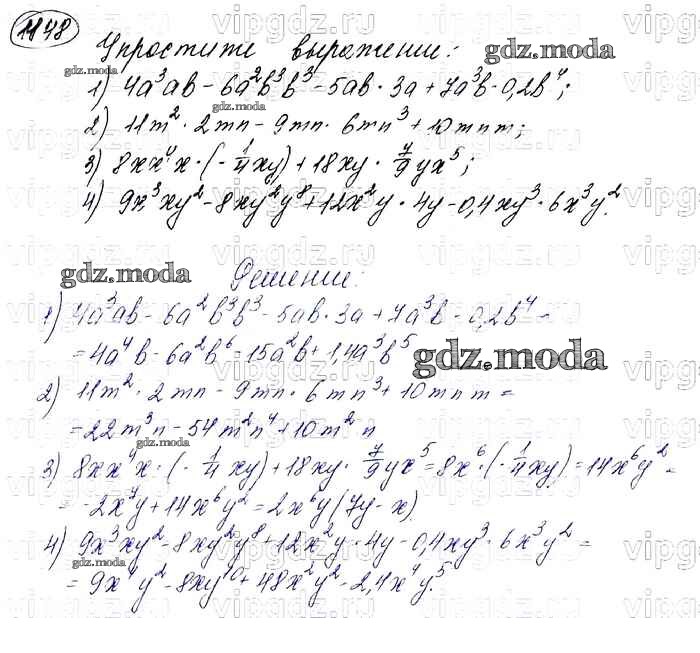 1148
Упростите выражение:
1) 4a³ab - 6a²b³b³ - 5ab · 3a + 7a³b · 0,2b⁴;
2) 11m² · 2mn - 9mn · 6mn³ + 10mnm;
3) 8xx⁴x · (-1/4xy) + 18xy · 7/9yx⁵;
4) 9x³xy² - 8xy²y⁸ + 12x²y · 4y - 0,4xy³ · 6x³y².
gdz.moda
Решение:
1) 4a³ab - 6a²b³b³ - 5ab · 3a + 7a³b - 0,2b⁴ =
= 4a⁴b - 6a²b⁶ = 15a²b + 1,4a³b⁵
gdz.moda
2) 11m² · 2mn - 9mn · 6mn³ + 10mnm =
= 22m³n - 54m²n⁴ + 10m²n
3) 8xx⁴x · (-1/4xy) + 18xy · 7/9yx⁵ = 8x⁶ · (-1/4xy) = 14x⁶y² =
= -2x⁷y + 14x⁶y² = 2x⁶y(7y - x)
4) 9x³xy² - 8xy²y⁸ + 12x²y · 4y - 0,4xy³ · 6x³y² =
= 9x⁴y² - 8xy¹⁰ + 48x²y² - 2,4x⁴y⁵.